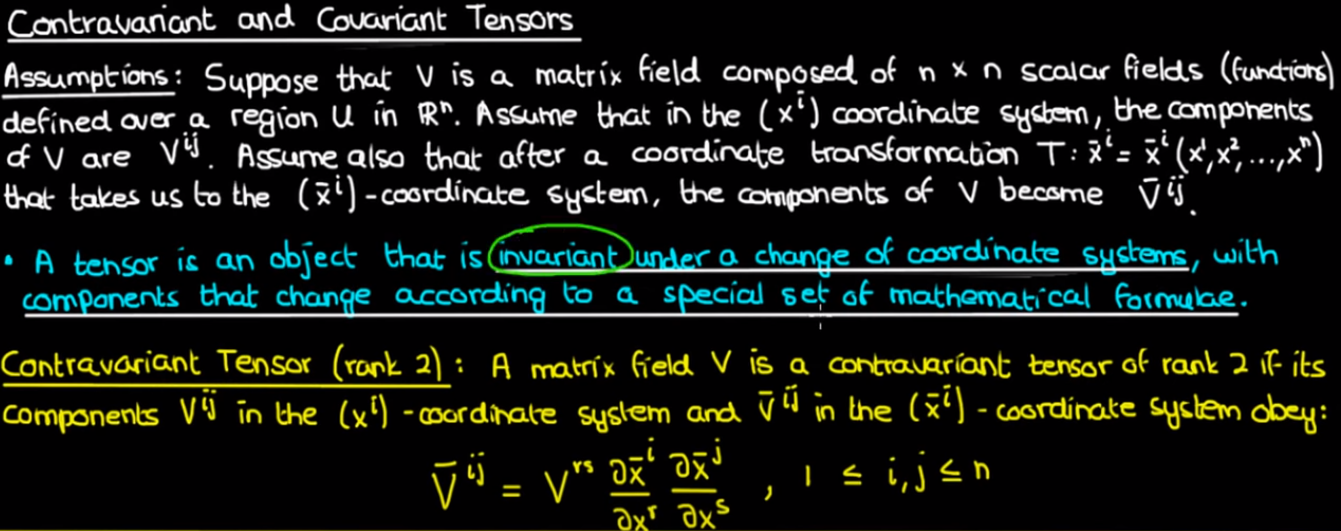 Contravariant and Covariant Tensors
Assumptions: Suppose that V is a matrix field composed of n × n scalar fields (functions)
defined over a region U in ℝⁿ. Assume that in the (xⁱ) coordinate system, the components
of V are Vⁱʲ. Assume also that after a coordinate transformation T: x̄ⁱ = x̄ⁱ(x¹,x²,...,xⁿ)
that takes us to the (x̄ⁱ)-coordinate system, the components of V become V̄ⁱʲ.
• A tensor is an object that is invariant under a change of coordinate systems, with
components that change according to a special set of mathematical formulae.
Contravariant Tensor (rank 2): A matrix field V is a contravariant tensor of rank 2 if its
components Vⁱʲ in the (xⁱ) - coordinate system and V̄ⁱʲ in the (x̄ⁱ) - coordinate system obey:
V̄ⁱʲ = Vʳˢ ∂x̄ⁱ/∂xʳ ∂x̄ʲ/∂xˢ , 1 ≤ i,j ≤ n